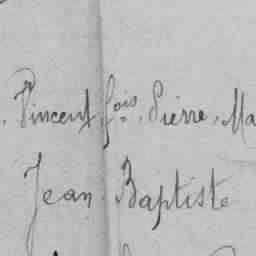 Vincent, fois, Pierre, Ma
Jean Baptiste